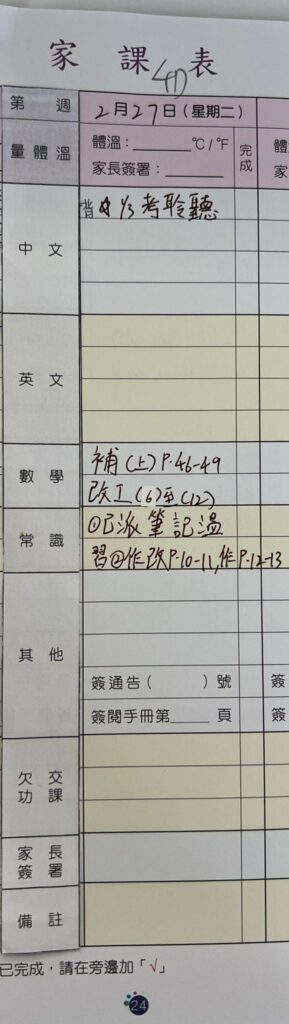 家 課 表
(1)
第 週
2月27日(星期二)
量體溫
體溫:______ °C/°F
家長簽署:______
完成
體
家
中 文
背 1/3考聆聽
英 文
數 學
補(上)P.46-49
改工(6)至(12)
常 識
①已派筆記溫
習②作改P.10-11,作P.12-13
其 他
簽通告( )號
簽
簽閱手冊第____ 頁
簽
欠 交
功 課
家 長
簽 署
備 註
已完成,請在旁邊加「√」
24